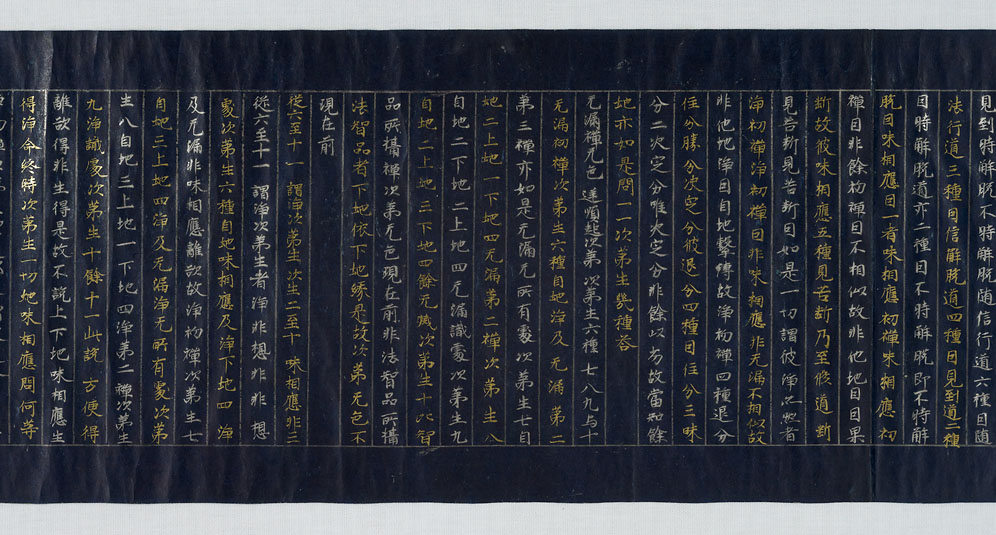 見到時解脫不時解脫隨信行道六種因隨
法行道三種因信解脫道四種因見到道二種
因時解脫道亦二種因不時解脫即不時解
脫因味相應因一者味相應初禪味相應初
禪因非餘初禪因不相似故非他地因因果
斷故彼味相應五種見苦斷乃至修道斷
見苦斷見苦斷因如是一切謂彼淨
淨初禪淨初禪因非味相應非无漏不相似故
非他地淨因自地繫縛故淨初禪四種退分
住分勝分決定分彼退分四種因住分三昧
分二次定分唯決定分非餘以劣故當知餘
地亦如是問一一次第生幾種答
无漏禪无色 逆順超次第 次第生六種 七八九与十
无漏初禪次第生六種自地淨及无漏第二
第三禪亦如是无漏无所有處次第生七自
地二上地一下地四无漏第二禪次第生八
自地二下地二上地四无漏識處次第生九
自地二上地三下地四餘无漏次第生十比智
品所攝禪次第无色現在前非法智品所攝
法智品者下地依下地緣是故次第无色不
現在前
從六至十一 謂淨次第生 次生二至十 味相應非三
從六至十一謂淨次第生者淨非想非非想
處次第生六種自地味相應及淨下地四淨
及无漏非味相應離欲故淨初禪次第生七
自地三上地四淨及无漏淨无所有處次第
生八自地三上地一下地四淨第二禪次第生
九淨識處次第生十餘十一此說方便得
離欲得非生得是故不說上下地味相應生
得淨命終時次第生一切地味相應問何等